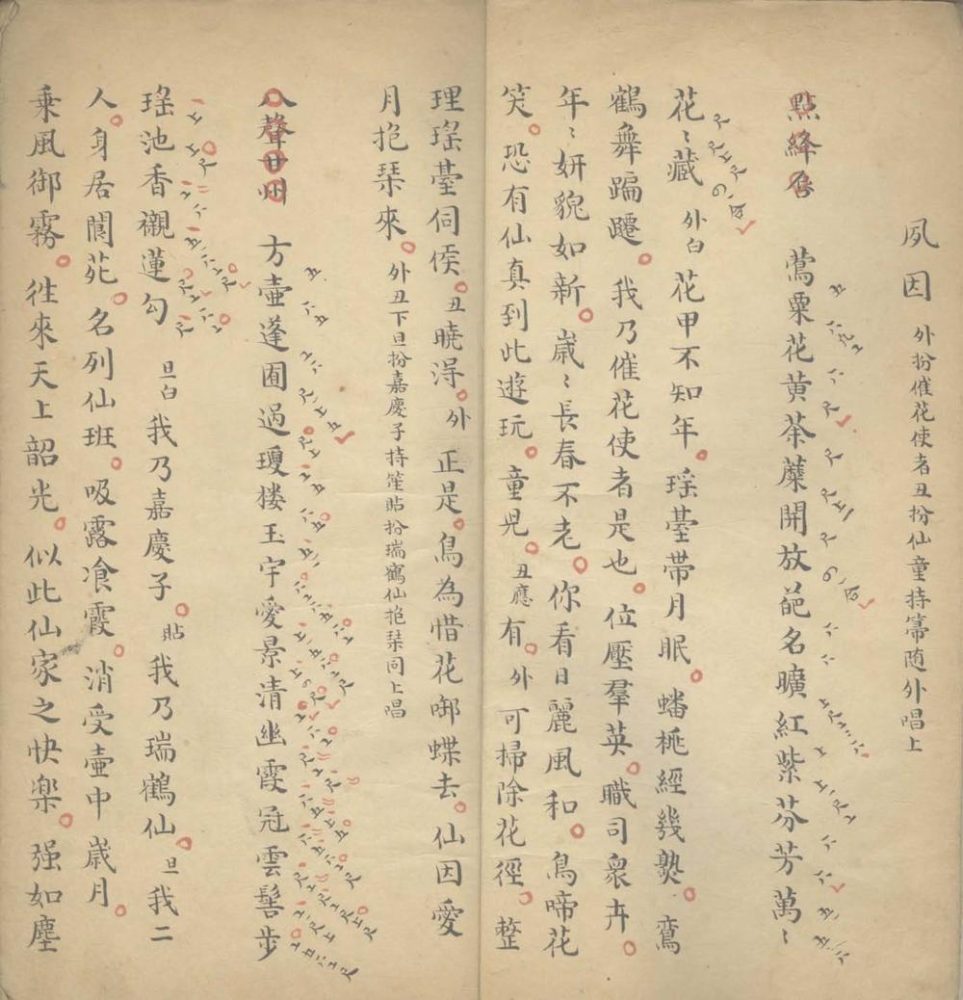 夙因 外扮催花使者丑扮仙童持箒随外唱上
點絳唇 鶯粟花黄荼蘼開放葩名曠紅紫芬芳萬〻
花〻藏 外白 花甲不知年。瑶臺帶月眠。蟠桃經幾熟。鸞
鶴舞蹁躚。我乃催花使者是也。位壓羣英。職司衆卉。
年〻妍貌如新。歲〻長春不老。你看日麗風和。鳥啼花
笑。恐有仙真到此遊玩。童児。丑應 有。外 可掃除花徑。整
理瑶臺伺候。丑 曉淂。外 正是。鳥為惜花啣蝶去。仙因愛
月抱琹來。外丑下旦扮嘉慶子持笙貼扮瑞鶴仙抱琹同上唱
八聲甘州 方壷蓬囿過瓊樓玉宇愛景清幽霞冠雲髻步
瑶池香襯蓮勾 旦白 我乃嘉慶子。貼 我乃瑞鶴仙。旦 我二
人。身居閬苑。名列仙班。吸露飡霞。消受壷中歲月。
乗風御霧。徃來天上韶光。似此仙家之快楽。强如塵